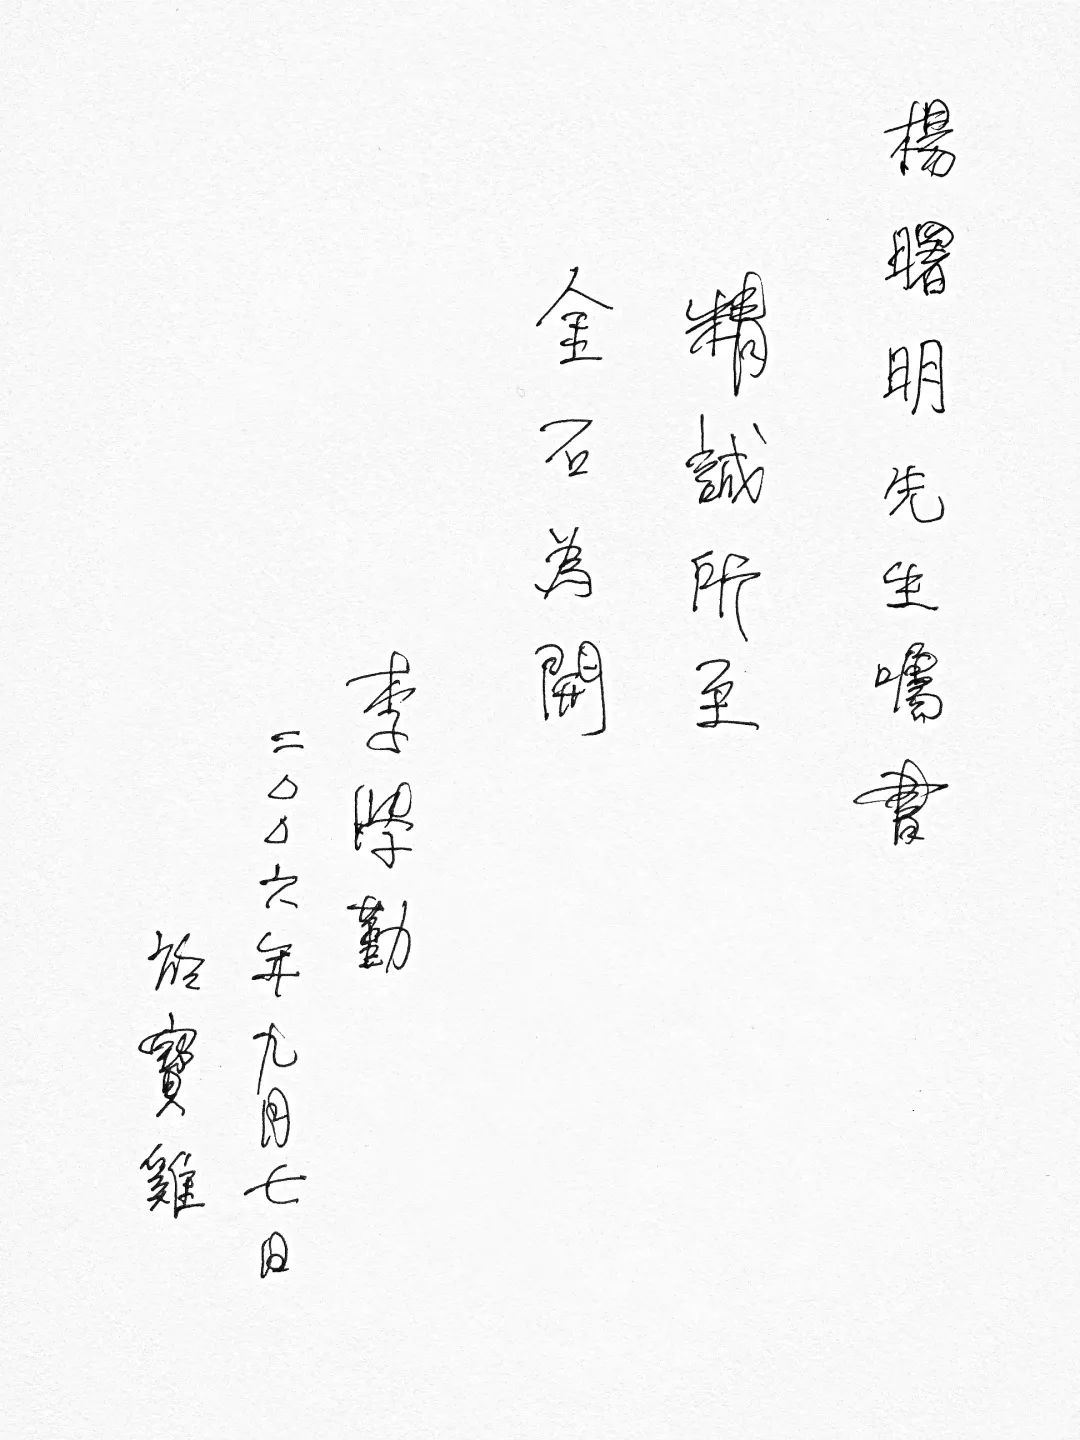 楊曙明先生囑書
精誠所至
金石為開
李學勤
二〇〇六年九月七日
於寶雞